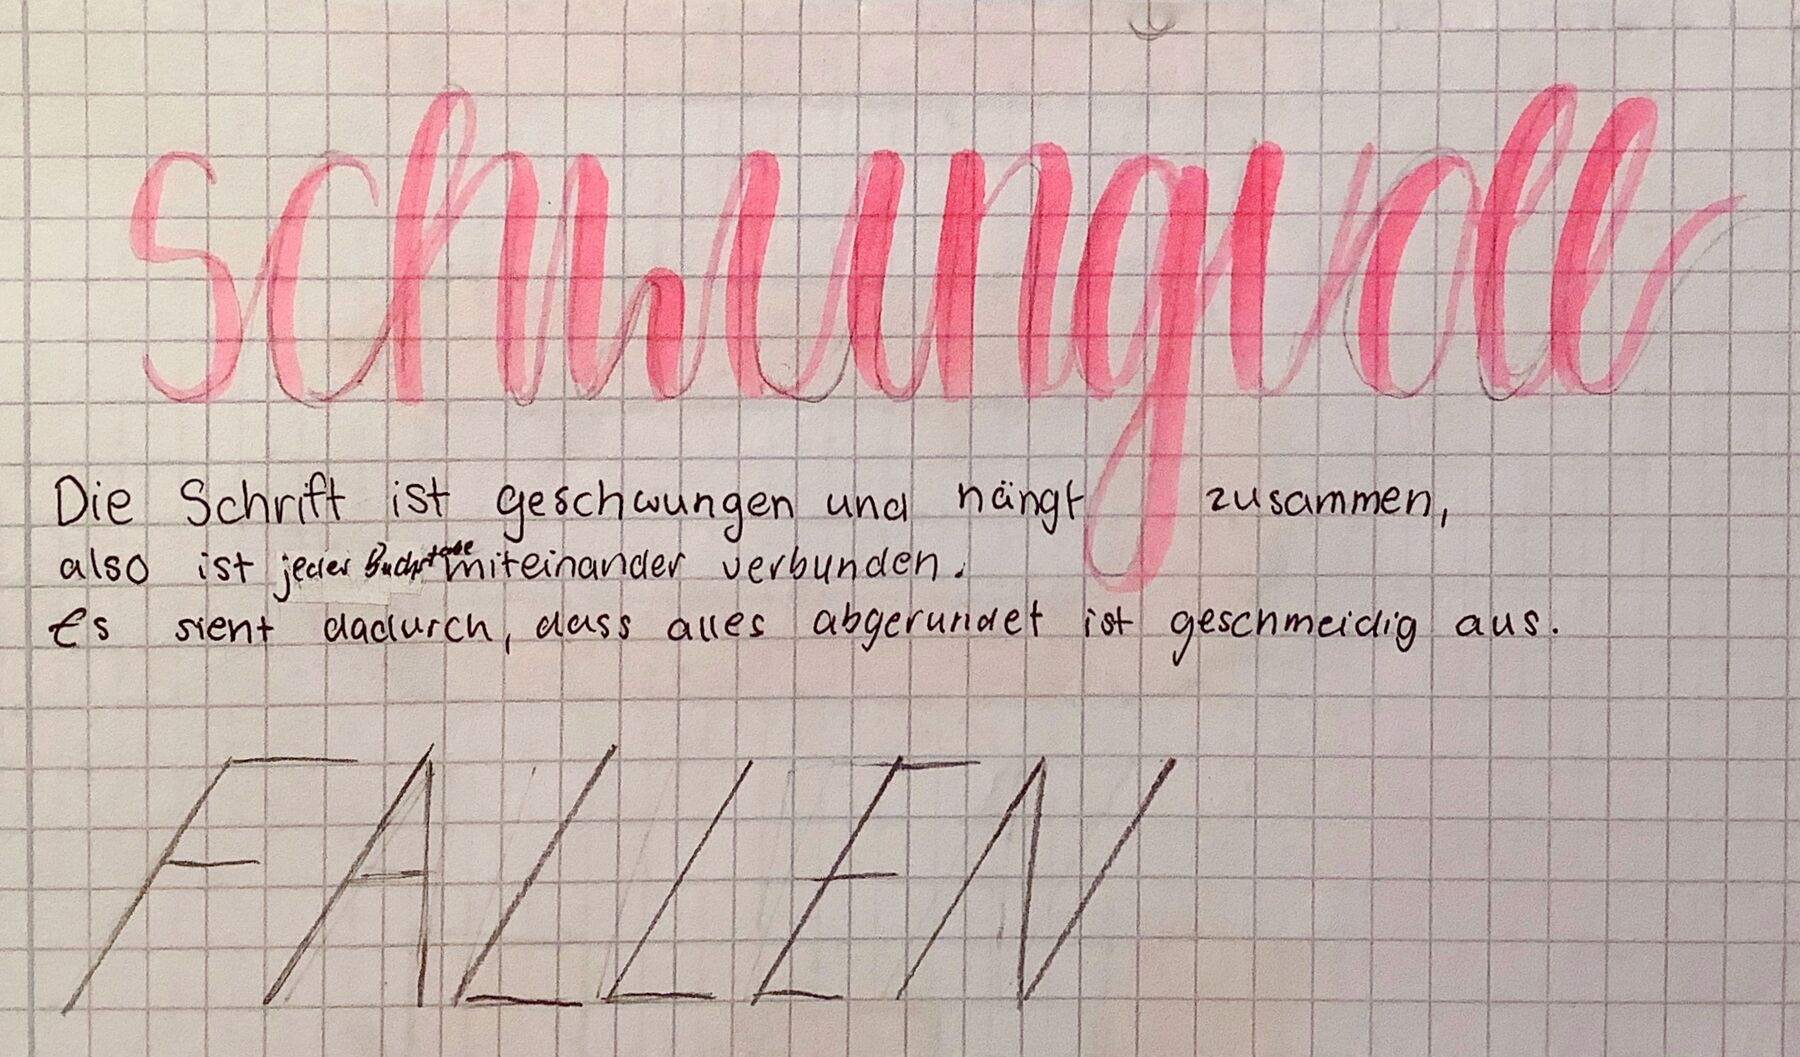 schwungvoll
Die Schrift ist geschwungen und hängt zusammen,
also ist jeder Buchstabe miteinander verbunden.
Es sieht dadurch, dass alles abgerundet ist geschmeidig aus.
FALLEN